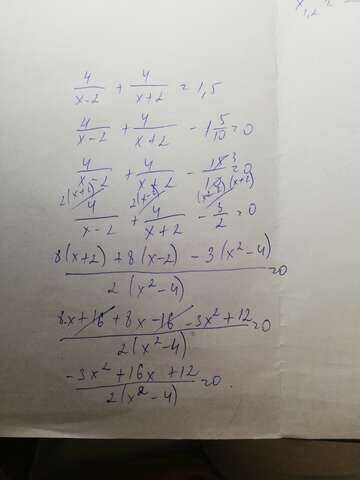 x₁,₂ =
4/(x-2) + 4/(x+2) = 1,5
4/(x-2) + 4/(x+2) - 1 5/10 = 0
4/(x-2) + 4/(x+2) - 15/10 = 0
2(x+2) 2(x-2) (x-2)(x+2)
4/(x-2) + 4/(x+2) - 3/2 = 0
(8(x+2) + 8(x-2) - 3(x²-4))/(2(x²-4)) = 0
(8x+16+8x-16-3x²+12)/(2(x²-4)) = 0
(-3x²+16x+12)/(2(x²-4)) = 0.